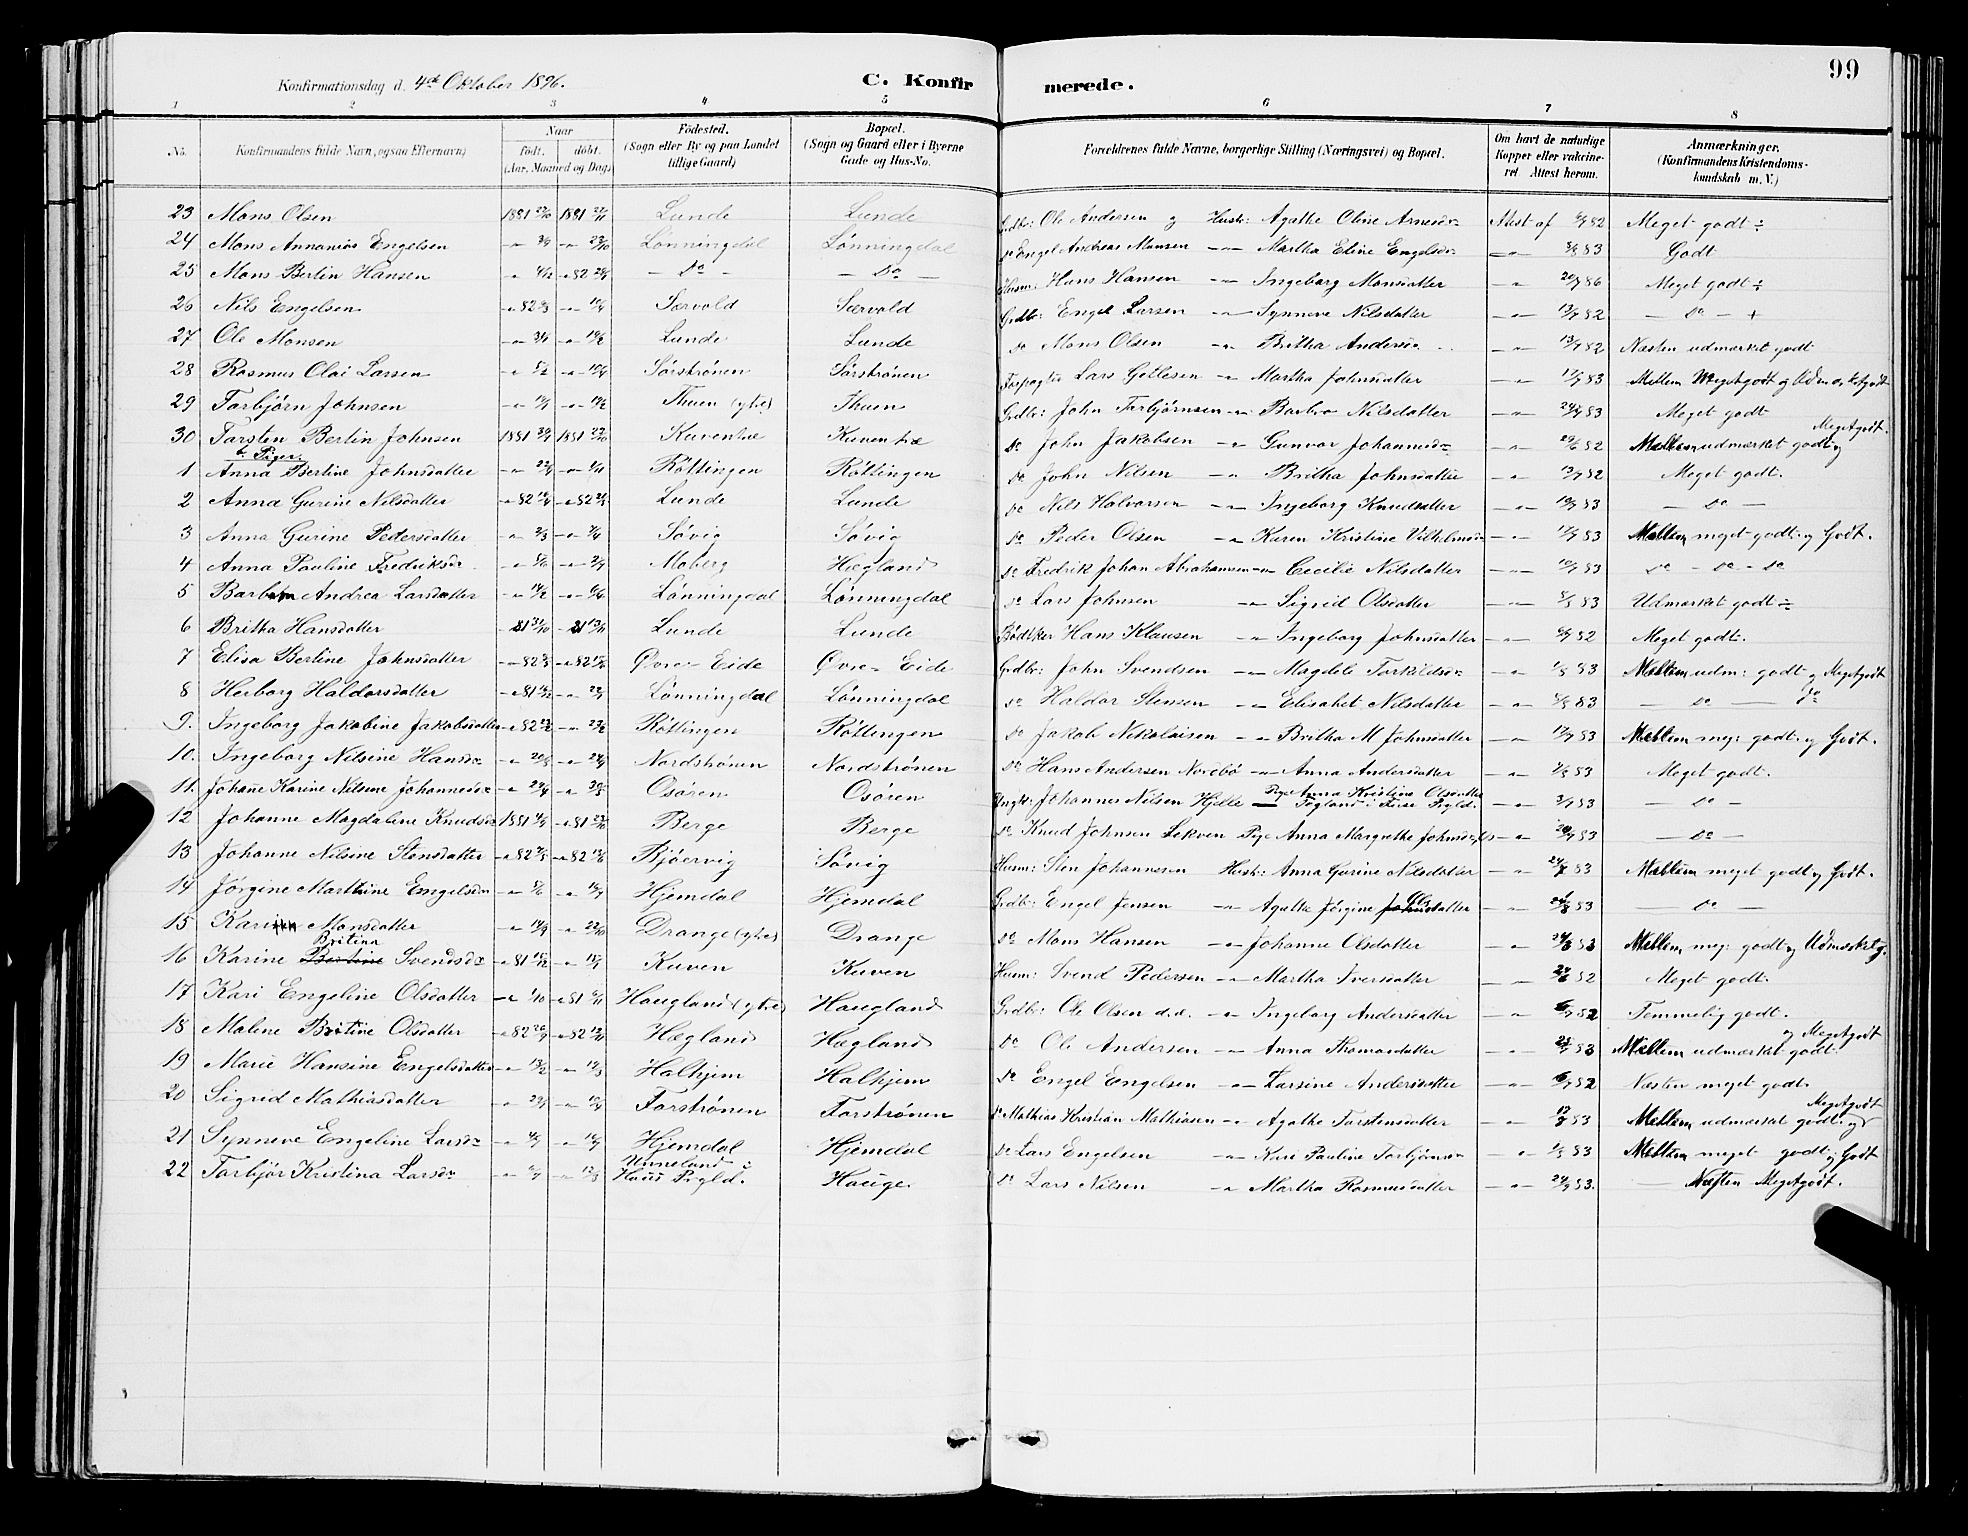 99
Konfirmationsdag d. 4de Oktober 1896. C. Konfirmerede.
1 2 3 4 5 6 7 8
No. Konfirmandens fulde Navn, ogsaa Efternavn) Naar Født. døbt. (Aar, Maaned og Dag) Fødested. (Sogn eller By og paa Landet tillige Gaard) Bopæl. (Sogn og Gaard eller i Byerne Gade og Hus-No. Forældrenes fulde Navne, borgerlige Stilling (Næringsvei) og Bopæl. Om havt de naturlige Kopper eller vaccineret Attest herom. Anmærkninger. (Konfirmandens Kristendomskundskab m. V.)
23 Mons Olsen 1881 1881 Lunde Lunde Grdbr: Ole Andersen og Hustr: Agathe Oline Arnesdr Attest af 82 Meget godt ÷
24 Mons Annanias Engelsen Lønningdal Lønningdal Do Engel Andreas Monsen Martha Eline Engelsdr 83 Godt
25 Mons Bertin Hansen 82 Do Do Husm: Hans Hansen Ingeborg Monsdatter 86 Meget godt ÷
26 Nils Engelsen 82 Særvold Særvold Grdbr: Engel Larsen Synneve Nilsdatter 13/7 82 Do +
27 Ole Monsen Lunde Lunde Do Mons Olsen Britha Andersd 13/7 82 Næsten udmærket godt
28 Rasmus Olai Larsen Sørstrønen Sørstrønen Forpagter Lars Gotlesen Martha Johnsdatter 83 Mellem Meget godt og Udmærket godt
29 Torbjørn Johnsen Thuen (ytre) Thuen Grdbr: John Torbjørnsen Barbro Nilsdatter 83 Meget godt
30 Torsten Bertin Johnsen 1881 1881 Kuventræ Kuventræ Do John Jakobsen Gunvor Johannesdr 82 Mellem udmærket godt og Meget godt.
b. Piger.
1 Anna Bertine Johnsdatter Røttingen Røttingen Do John Nilsen Britha Johnsdatter 13/7 82 Meget godt.
2 Anna Gurine Nilsdatter 82 82 Lunde Lunde Do Nils Halvorsen Ingeborg Knudsdatter 83 Do
3 Anna Gurine Pedersdatter Søvig Søvig Do Peder Olsen Karen Kristine Vilhelmsdr 83 Mellem meget godt og Godt.
4 Anna Pauline Fredriksdr Moberg Hægland Do Fredrik Johan Abrahamsen Cecilie Nilsdatter 83 Do Do Do
5 Andrea Larsdatter Lønningdal Lønningdal Do Lars Johnsen Sigrid Olsdatter 83 Udmærket godt ÷
6 Britha Hansdatter 81 81 Lunde Lunde Bødtker Hans Klausen Ingeborg Johnsdatter 82 Meget godt.
7 Elisa Bertine Johnsdatter 82 82 Øvre Eide Øvre Eide Grdbr: John Svendsen Magdeli Torkildsdr 83 Mellem udm: godt og Meget godt
8 Herborg Haldorsdatter 81 Lønningdal Lønningdal Do Haldor Stensen Elisabet Nilsdatter 83 Do Do
9. Ingeborg Jakobine Jakobsdatter 82 Røttingen Røttingen Do Jakob Nikolaisen Britha M Johnsdatter 83 Mellem meg: godt og Godt.
10. Ingeborg Nilsine Hansdr Nordstrønen Nordstrønen Do Hans Andersen Nordbø Anna Andersdatter 83 Meget godt.
11. Johane Karine Nilsine Johannesdr Osøren Osøren Ungk: Johannes Nilsen Hjelle Pige Anna Kristine Olsdatter Fogland i Fur Prgld. 83 Do
12 Johanne Magdalene Knudsdr 1881 81 Berge Berge Do Knud Johnsen Lekven Pige Anna Margrethe Johnsdr 83 Do
13 Johanne Nilsine Stensdatter 82 82 Bjørvig Søvig Husm: Sten Johannesen Hustr: Anna Gurine Nilsdatter 83 Mellem meget godt og Godt.
14 Jørgine Marthine Engelsdr Hjemdal Hjemdal Grdbr: Engel Jensen Agathe Jørgine Olsdatter 83 Do
15 Monsdatter Drange (ytre) Drange Do Mons Hansen Johanne Olsdatter 83 Mellem meg: godt og Udmærket g.
16 Karine Britina Svendsdr 81 Kuven Kuven Husm: Svend Pedersen Martha Iversdatter 82 Meget godt.
17 Kari Engeline Olsdatter 81 Haugland (ytre) Haugland Grdbr: Ole Olsen d.e. Ingeborg Andersdatter 82 Temmelig godt.
18 Malene Britine Olsdatter 82 82 Hægland Hægland Do Ole Andersen Anna Thomasdatter 83 Mellem udmærket godt og Meget godt
19 Marie Hansine Engelsdatter Halhjem Halhjem Do Engel Engelsen Larsine Andersdatter 82 Næsten meget godt.
20 Sigrid Mathiasdatter Forstrønen Forstrønen Do Mathias Kristian Mathiasen Agathe Torstensdatter 83 Mellem udmærket godt og Meget godt
21 Synneve Engeline Larsdr Hjemdal Hjemdal Do Lars Engelsen Kari Pauline Torbjørnsdr 83 Mellem meget godt og Godt
22 Torbjør Kristina Larsdr Unneland i Haus Prgld. Hauge. Do Lars Nilsen Martha Rasmusdatter 83. Næsten Meget godt.